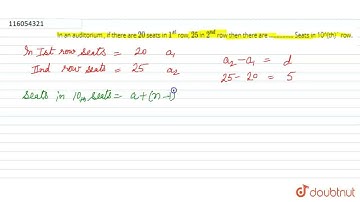 116054321
In an auditorium , if there are 20 seats in 1st row, 25 in 2nd row then there are .............. Seats in 10^(th)` row.
In Ist row seats = 20 a₁
IInd row seats = 25 a₂
a₂ - a₁ = d
25 - 20 = 5
Seats in 10th seats = a + (n-1)
doubtnut